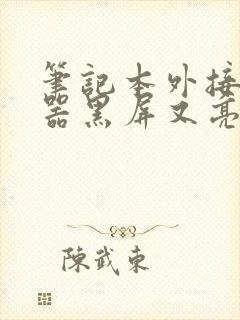 筆記本外接
器黑屏又亮
陳武東